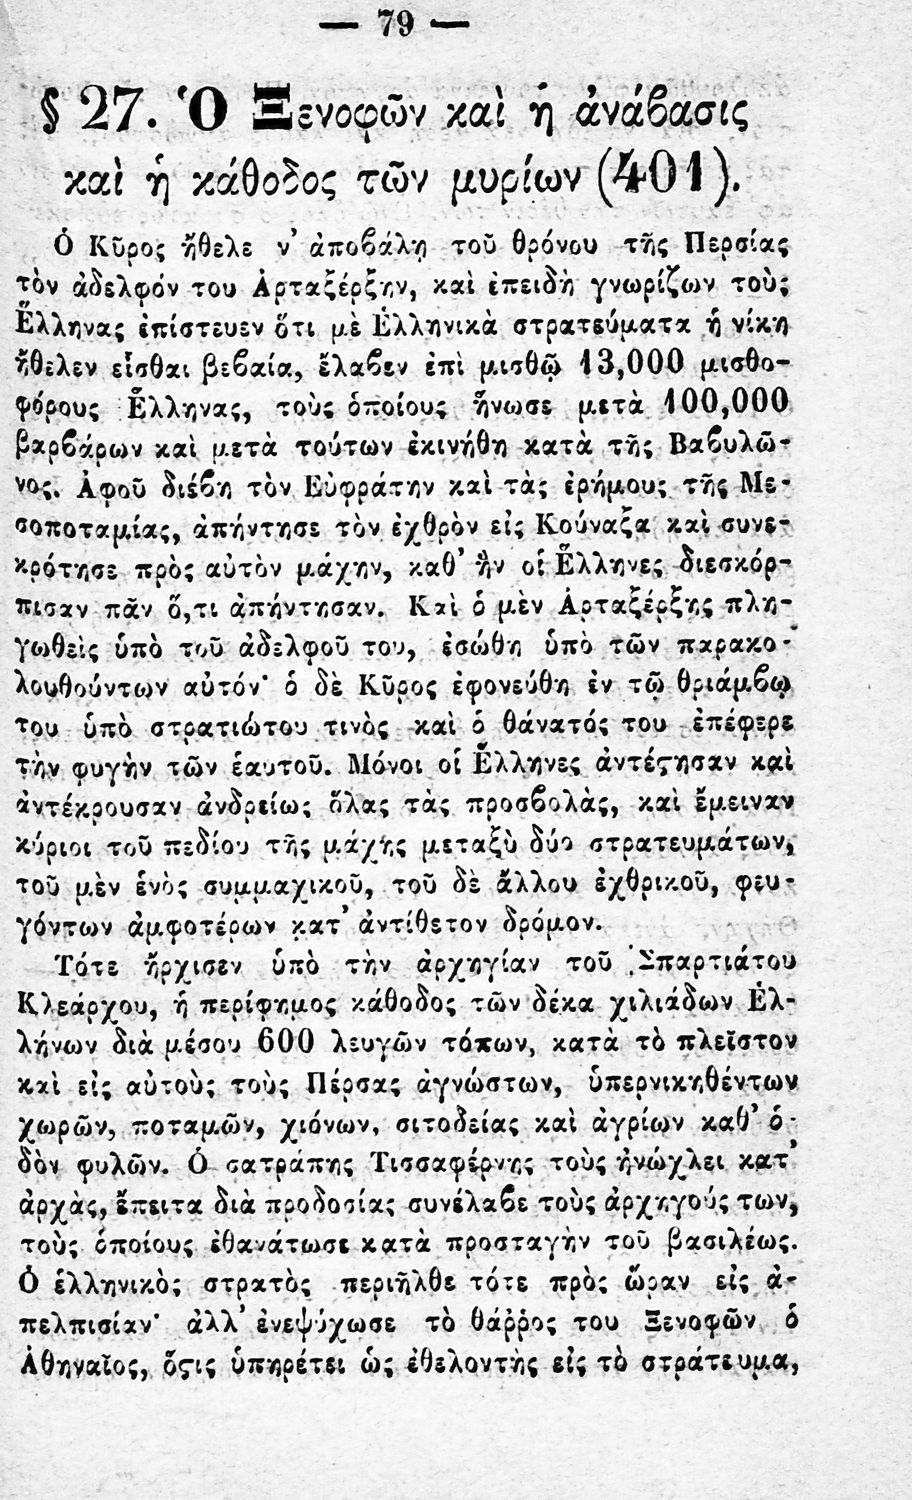 — 79 —
§ 27. Ὁ Ξενοφῶν καὶ ἡ ἀνάβασις
καὶ ἡ κάθοδος τῶν μυρίων (401).
Ὁ Κῦρος ἤθελε ν' ἀποβάλῃ τοῦ θρόνου τῆς Περσίας
τὸν ἀδελφόν του Ἀρταξέρξην, καὶ ἐπειδὴ γνωρίζων τοὺς
Ἕλληνας ἐπίστευεν ὅτι μὲ Ἑλληνικὰ στρατεύματα ἡ νίκη
ἤθελεν εἶσθαι βεβαία, ἔλαβεν ἐπὶ μισθῷ 13,000 μισθο-
φόρους Ἕλληνας, τοὺς ὁποίους ἥνωσε μετὰ 100,000
βαρβάρων καὶ μετὰ τούτων ἐκινήθη κατὰ τῆς Βαβυλῶ-
νος. Ἀφοῦ διέβη τὸν Εὐφράτην καὶ τὰς ἐρήμους τῆς Με-
σοποταμίας, ἀπήντησε τὸν ἐχθρὸν εἰς Κούναξα καὶ συνε-
κρότησε πρὸς αὐτὸν μάχην, καθ' ἣν οἱ Ἕλληνες διεσκόρ-
πισαν πᾶν ὅ,τι ἀπήντησαν. Καὶ ὁ μὲν Ἀρταξέρξης πλη-
γωθεὶς ὑπὸ τοῦ ἀδελφοῦ του, ἐσώθη ὑπὸ τῶν παρακο-
λουθούντων αὐτόν· ὁ δὲ Κῦρος ἐφονεύθη ἐν τῷ θριάμβῳ
του ὑπὸ στρατιώτου τινὸς καὶ ὁ θάνατός του ἐπέφερε
τὴν φυγὴν τῶν ἑαυτοῦ. Μόνοι οἱ Ἕλληνες ἀντέϛησαν καὶ
ἀντέκρουσαν ἀνδρείως ὅλας τὰς προσβολὰς, καὶ ἔμειναν
κύριοι τοῦ πεδίου τῆς μάχης μεταξὺ δύο στρατευμάτων,
τοῦ μὲν ἑνὸς συμμαχικοῦ, τοῦ δὲ ἄλλου ἐχθρικοῦ, φευ-
γόντων ἀμφοτέρων κατ' ἀντίθετον δρόμον.
Τότε ἤρχισεν ὑπὸ τὴν ἀρχηγίαν τοῦ Σπαρτιάτου
Κλεάρχου, ἡ περίφημος κάθοδος τῶν δέκα χιλιάδων Ἑλ-
λήνων διὰ μέσου 600 λευγῶν τόπων, κατὰ τὸ πλεῖστον
καὶ εἰς αὐτοὺς τοὺς Πέρσας ἀγνώστων, ὑπερνικηθέντων
χωρῶν, ποταμῶν, χιόνων, σιτοδείας καὶ ἀγρίων καθ' ὁ-
δὸν φυλῶν. Ὁ σατράπης Τισσαφέρνης τοὺς ἠνώχλει κατ'
ἀρχὰς, ἔπειτα διὰ προδοσίας συνέλαβε τοὺς ἀρχηγούς των,
τοὺς ὁποίους ἐθανάτωσε κατὰ προσταγὴν τοῦ βασιλέως.
Ὁ ἑλληνικὸς στρατὸς περιῆλθε τότε πρὸς ὥραν εἰς ἀ-
πελπισίαν· ἀλλ' ἐνεψύχωσε τὸ θάῤῥος του Ξενοφῶν ὁ
Ἀθηναῖος, ὅϛις ὑπηρέτει ὡς ἐθελοντὴς εἰς τὸ στράτευμα,